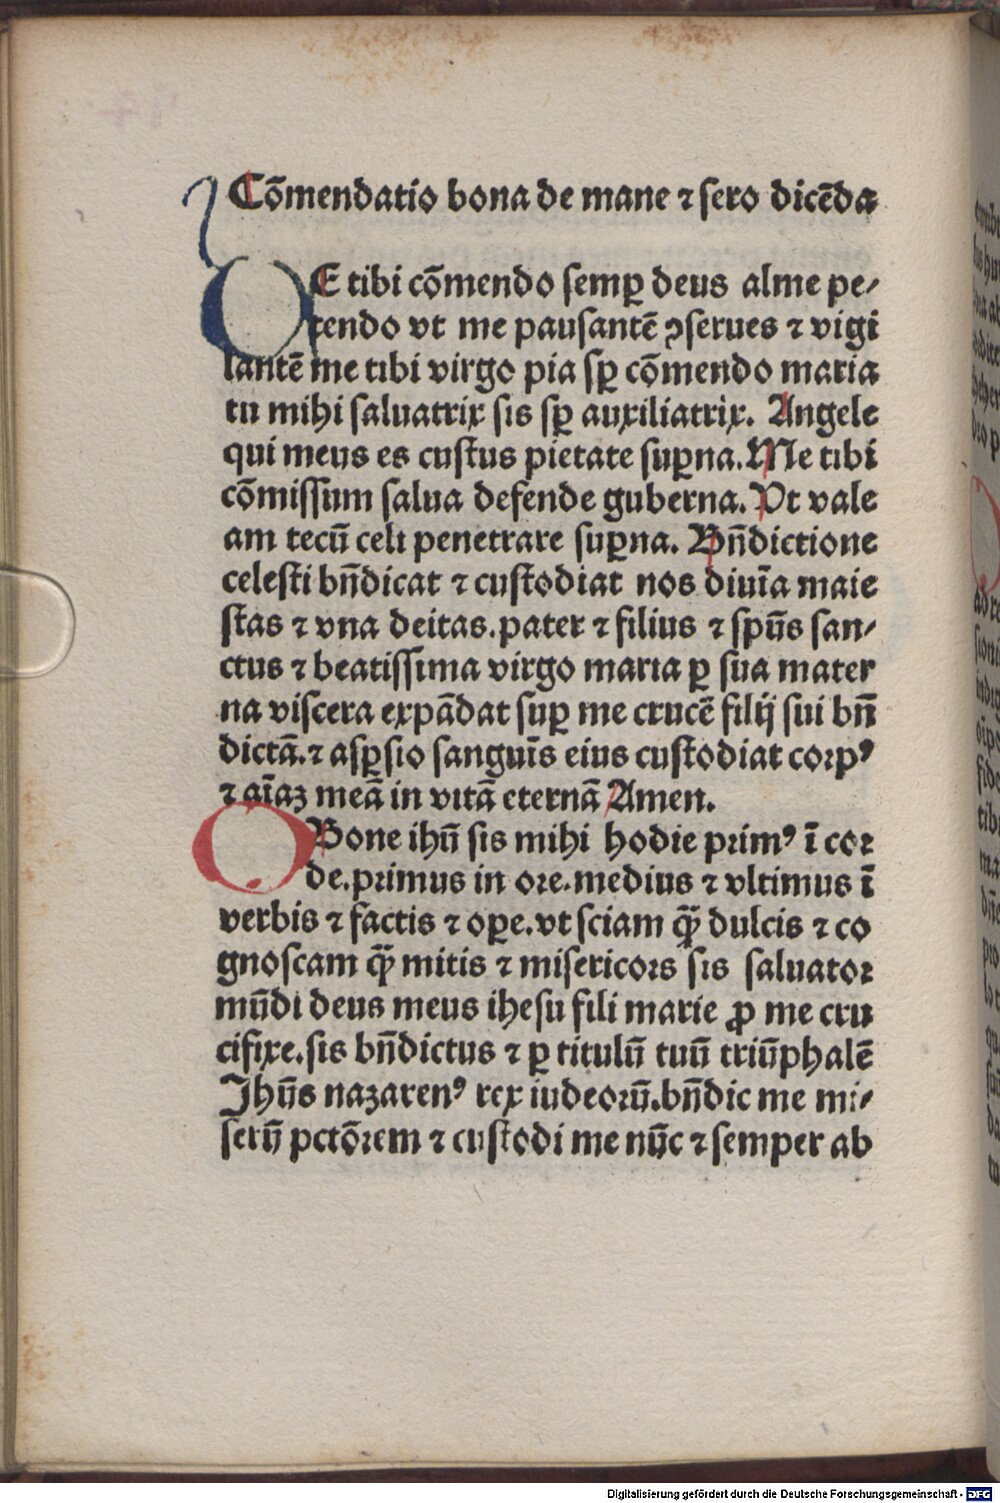 Cōmendatio bona de mane ⁊ sero dicēda
OE tibi cōmendo semꝑ deus alme pe⸗
tendo vt me pausantē ꝯserues ⁊ vigi
lantē me tibi virgo pia sꝑ cōmendo maria
tu mihi saluatrix sis sꝑ auxiliatrix. Angele
qui meus es custus pietate suꝑna. Me tibi
cōmissum salua defende guberna. Vt vale
am tecū celi penetrare suꝑna. Bn̄dictione
celesti bn̄dicat ⁊ custodiat nos diuīa maie
stas ⁊ vna deitas. pater ⁊ filius ⁊ spūs san⸗
ctus ⁊ beatissima virgo maria ꝑ sua mater
na viscera expādat suꝑ me crucē filij sui bn̄
dictā. ⁊ asꝑsio sanguīs eius custodiat corpꝰ
⁊ aīaꝫ meā in vitā eternā Amen.
O Bone ihū sis mihi hodie primꝰ ī cor
de. primus in ore. medius ⁊ vltimus ī
verbis ⁊ factis ⁊ oꝑe. vt sciam q̄ꝫ dulcis ⁊ co
gnoscam q̄ꝫ mitis ⁊ misericors sis saluator
mūdi deus meus ihesu fili marie ꝓ me cru
cifixe. sis bn̄dictus ⁊ ꝑ titulū tuū triūphalē
Jhūs nazarenꝰ rex iudeorū. bn̄dic me mi⸗
serū pctōrem ⁊ custodi me nūc ⁊ semper ab
Digitalisierung gefördert durch die Deutsche Forschungsgemeinschaft - DFG